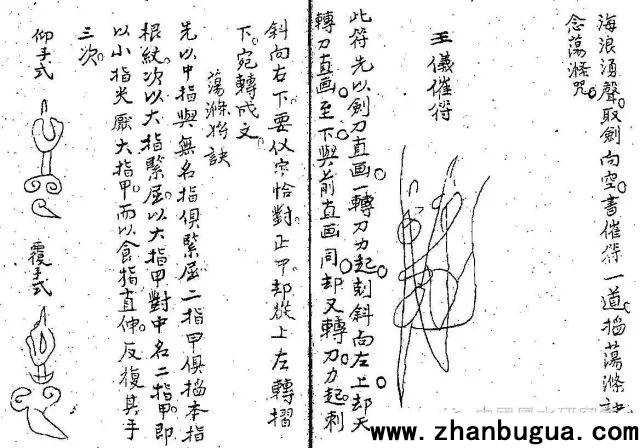 海浪湧聲。取劍向空。書催符一道。搯蕩滌訣
念蕩滌咒。
王儀催符
此符先以劍刀直画。一轉刀力起。刺斜向左上。却天
轉刀直画。至下與前直画同。却又轉刀力起。刺
斜向右下。要似字恰對正甲。却從上左轉摺
下。宛轉成文。
蕩滌符訣
先以中指與無名指俱緊屈二指甲俱搯本指
根紋。次以大指緊屈以大指甲對中名二指甲。即
以小指尖壓大指甲。而以食指直伸。反復其手
三次。
仰手式
覆手式
www.zhanbugua.com